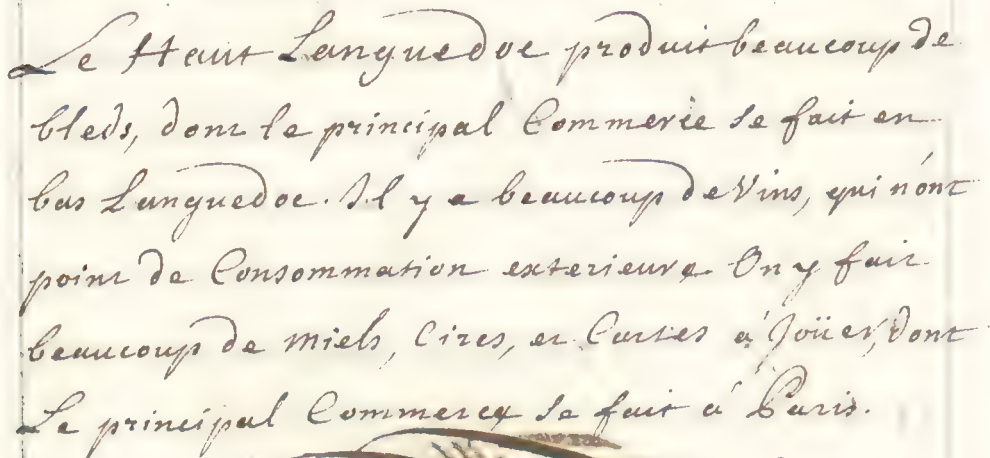 Le Haut Languedoc produit beaucoup de
bleds, dont le principal Commerce se fait en
bas Languedoc. Il y a beaucoup de Vins, qui n'ont
point de Consommation exterieure. On y fait
beaucoup de miels, Cires, et Cartes à Joüer, dont
Le principal Commerce se fait à Paris.